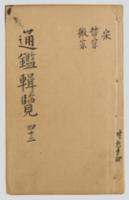 宋
哲宗
徽宗
通鑑輯覽 四十三